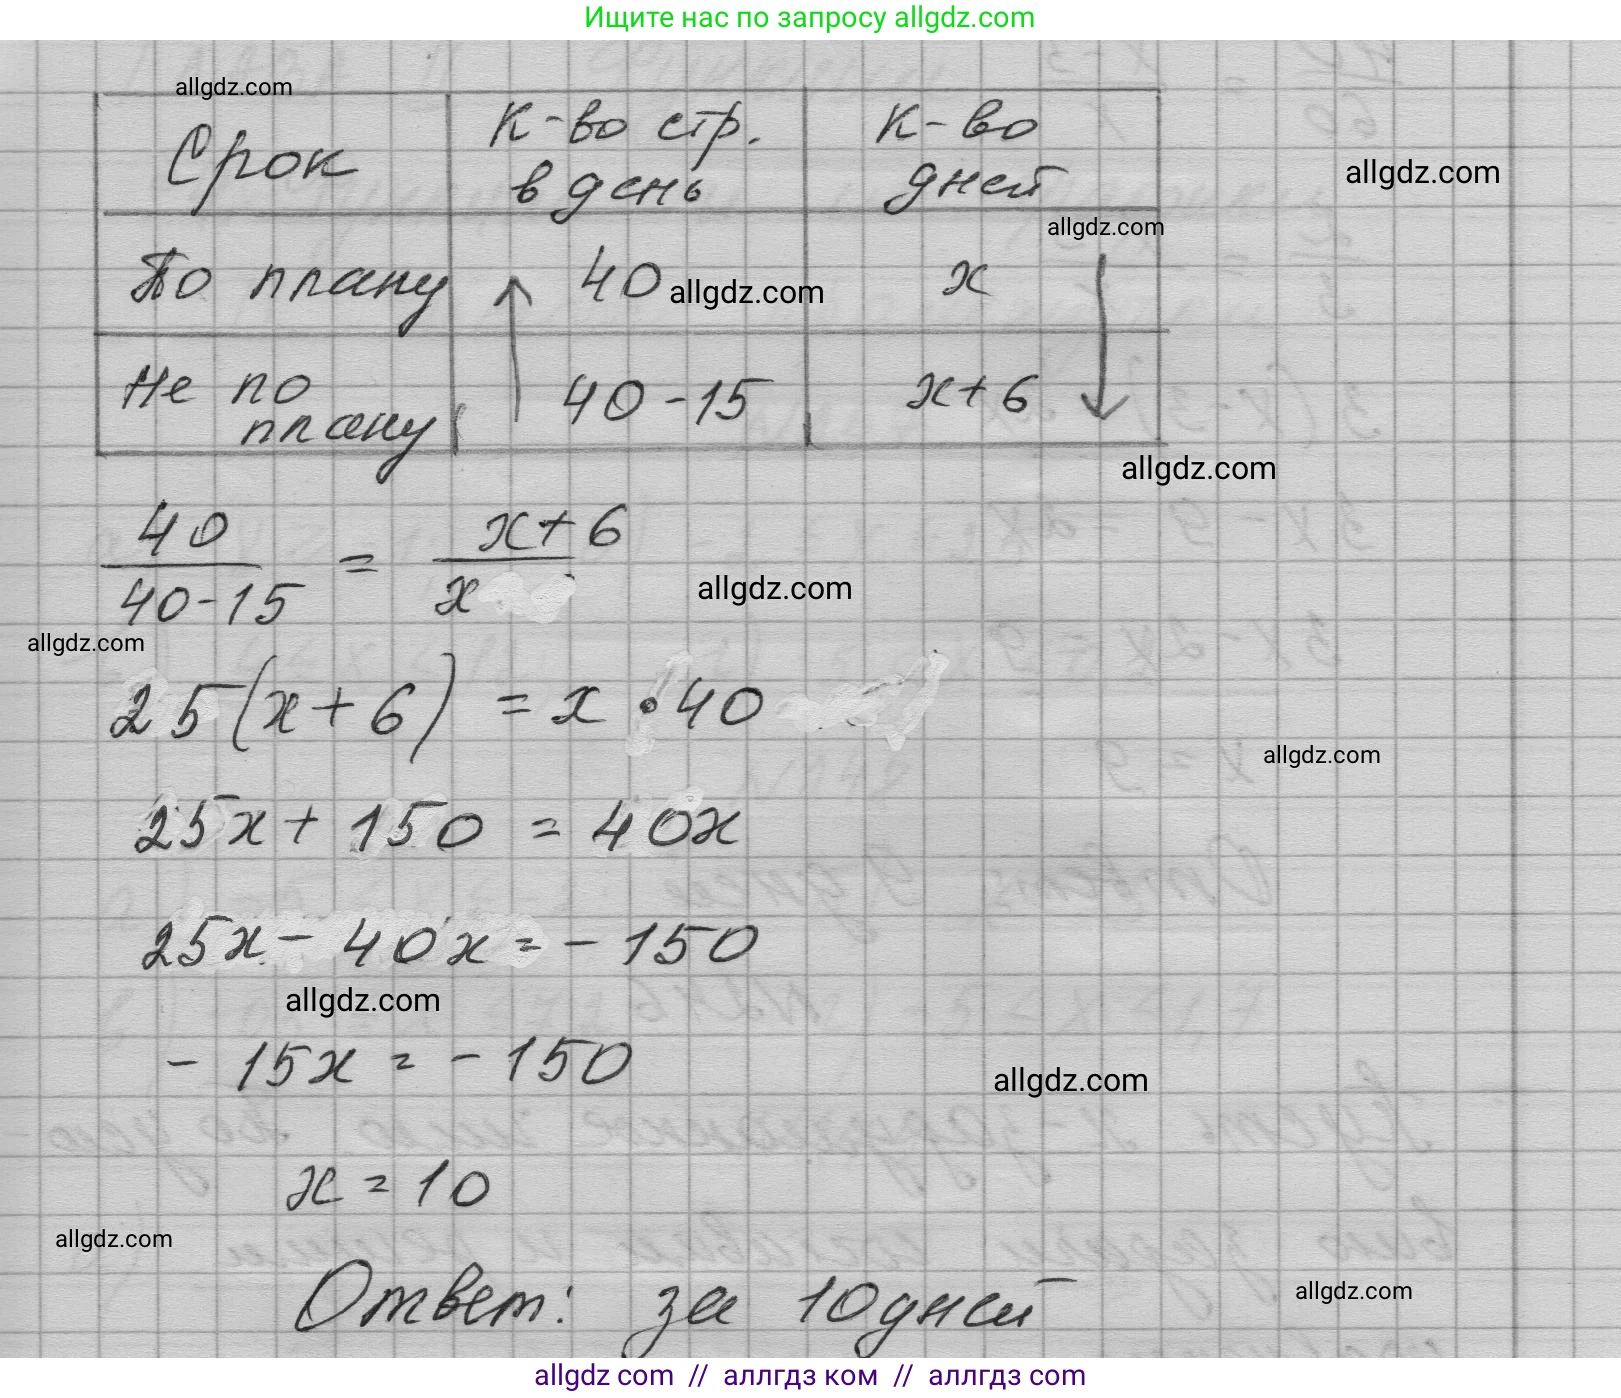 Ищите нас по запросу allgdz.com
allgdz.com
Срок К-во стр. в день К-во дней
allgdz.com
allgdz.com
По плану 40 x
allgdz.com
Не по плану 40-15 x+6
allgdz.com
40/(40-15) = (x+6)/x
allgdz.com
allgdz.com
25(x+6) = x·40
allgdz.com
25x+150 = 40x
25x-40x=-150
allgdz.com
-15x=-150
allgdz.com
x=10
allgdz.com
allgdz.com
Ответ: за 10 дней
allgdz com // аллгдз ком // аллгдз com